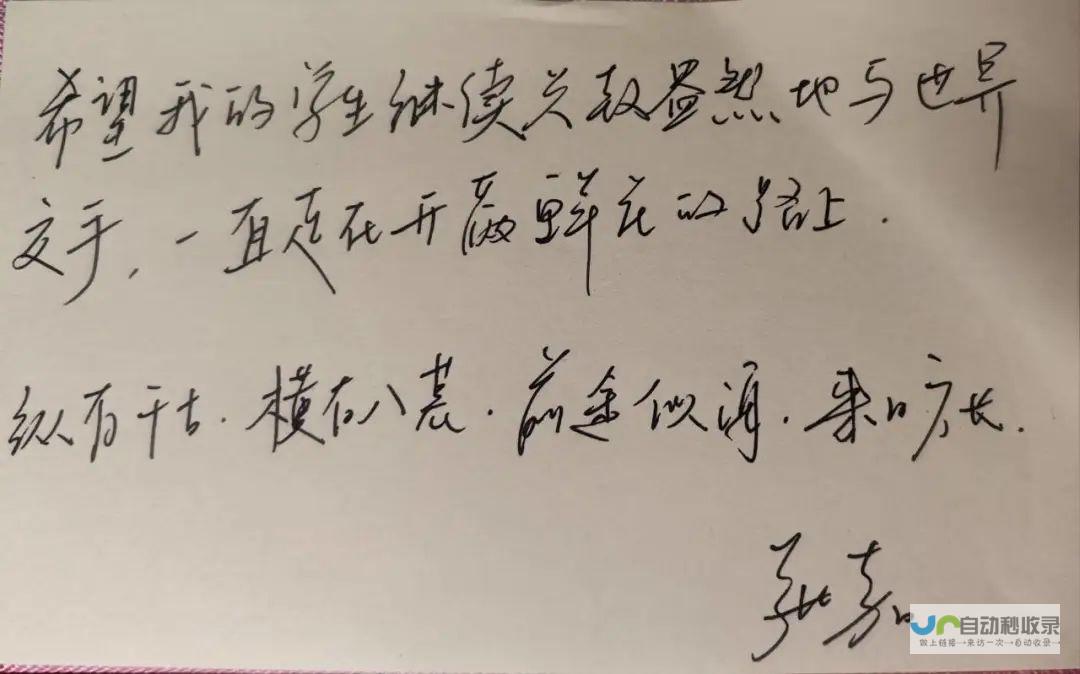 希望我的学生继续兴致盎然地与世界
交手,一直走在开满鲜花的路上.
纵有千古.横有八荒.前途似海.来日方长.
张嘉
自动秒收录
做上链接→来访一次→自动收录→